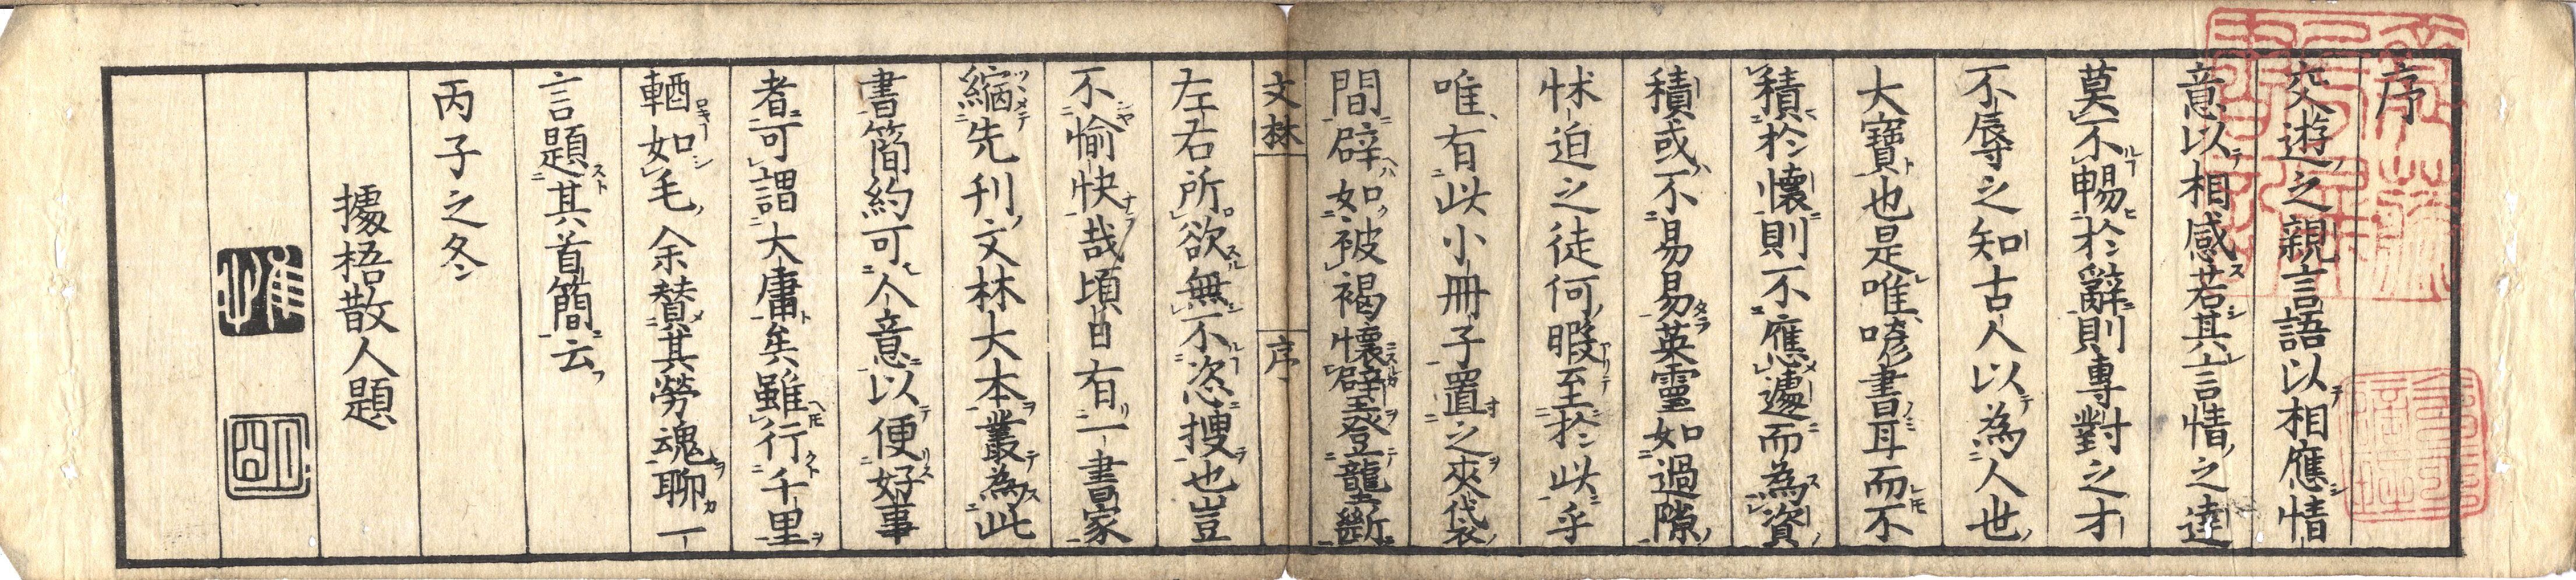 序
交遊之親言語以相應情
意以相感若其言情之達
莫不暢於辭則專對之才
不辱之知古人以為人世
大寶也是唯啻書耳而不
積於懷則不應遽而為資
積或不易易英靈如過隙
怵迫之徒何暇至於此乎
唯有此小冊子置之夾袋
間辟如被褐懷璧登龍斷
文林 序
左右所欲無不恣搜也豈
不愉快哉頃日有一書家
縮先刊文林大本叢為此
書簡約可人意以便好事
者可謂大庸矣雖行千里
輶如毛余贊其勞魂聊一
言題其首簡云
丙子之冬
據梧散人題